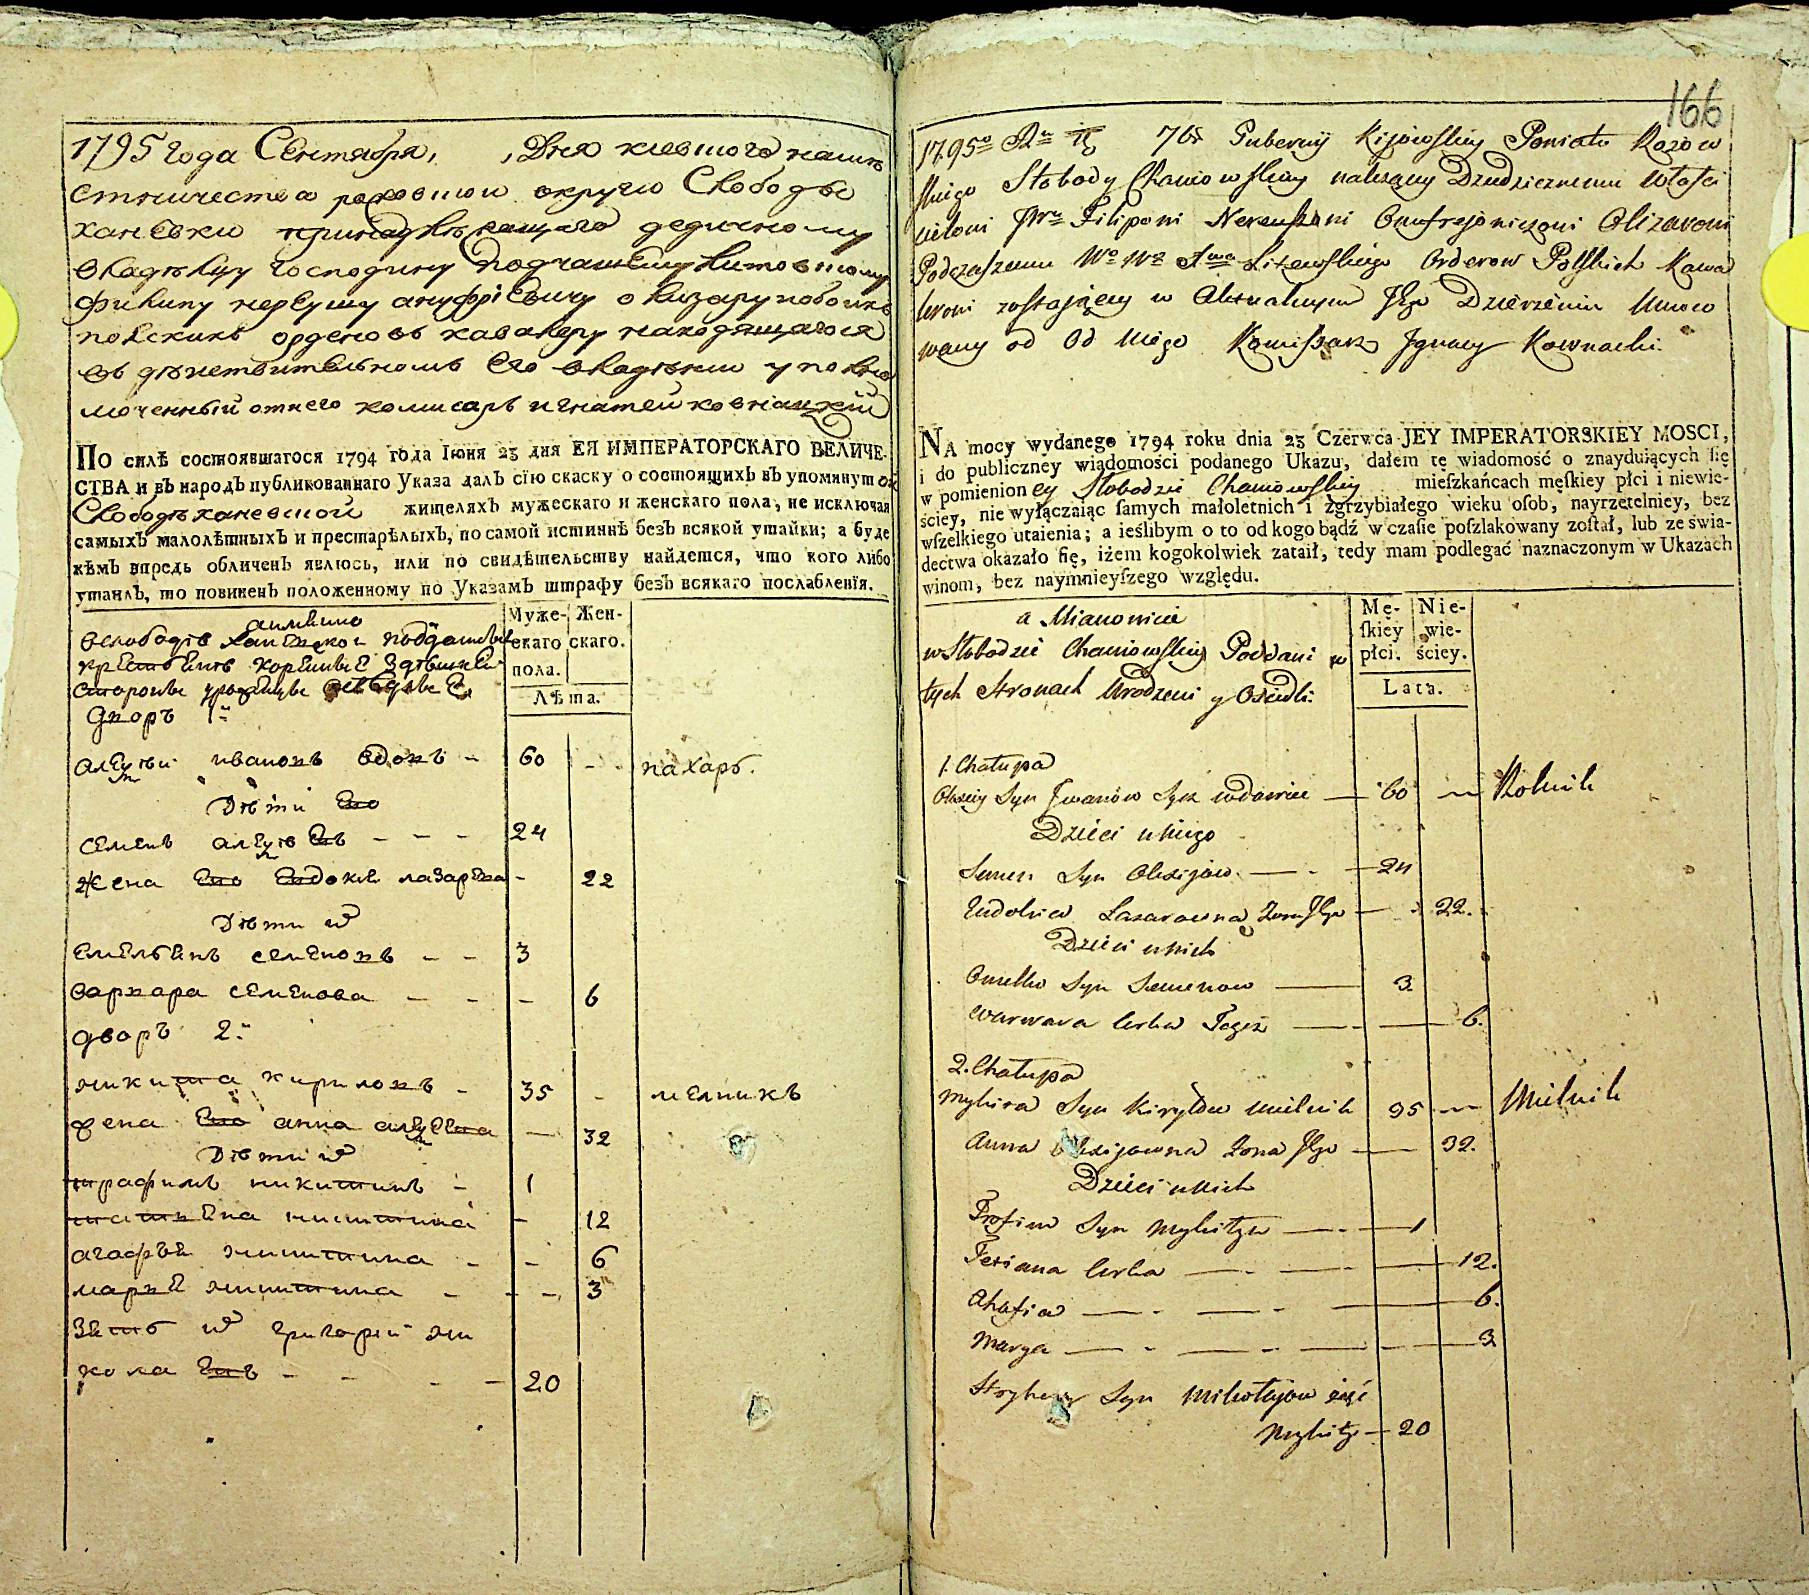 166
1795 года Сентября, Дня киевшого намѣ
стничества роховшои округи Слободы
ханевки принадлѣжащаго дедичному
владѣлцу Господину Подчашему Литовшому
филипу нереушу ануфрїевичу олизару
полскихъ орденовъ кавалеру находящагося
въ дѣиствительномъ Его владѣнии уполно
моченный отнего комисаръ игнатей ковнацкїй
ПО силѣ состоявшагося 1794 года Іюня 23 дня ЕЯ ИМПЕРАТОРСКАГО ВЕЛИЧЕ-
СТВА и въ народъ публикованнаго Указа далъ сїю скаску о состоящихъ въ упомянутой
Слободѣ ханевшой жителяхъ мужескаго и женскаго пола, не исключая
самыхъ малолѣтныхъ и престарѣлыхъ, по самой истиннѣ безъ всякой утайки; а буде
кѣмъ впредь обличенъ явлюсь, или по свидѣтельству найдется, что кого либо
утаилъ, то повиненъ положенному по Указамъ штрафу безъ всякаго послабленїя.
а имянно
Муже- Жен-
скаго скаго.
пола.
Лѣта.
Дворъ 1й
алеѯѣй ивановъ вдовъ 60 пахарь.
Дѣти Его
семенъ алеѯѣевъ 24
Жена Его Евдокия лазарева 22
Дѣти их
емельянъ семеновъ 3
варвара семенова 6
дворъ 2й
никита кириловъ 35 мелникъ
жена Его анна алеѯеева 32
Дѣти их
трафимъ никитинъ 1
татьяна никитина 12
агафья никитина 6
мария никитина 3
зять их григорей ни
колаевъ 20
1795o Ru 7br Gubernij Kijowskiey Powiatu Rozow
skiego Słobody Chaniowskiey należącey Dziedzicznemu Włości
cielowi JWu Filipowi Nereuszowi Onufrejowiczowi Olizarowi
Podczaszemu Litewskiego Orderow Polskich Kawa
lerowi zostaiącey w Aktualnym Jego Dzierzeniu Umoco
wany od Od Niego Komissarz Jgnacy Kownacki.
NA mocy wydanego 1794 roku dnia 23 Czerwca JEY IMPERATORSKIEY MOSCI,
i do publiczney wiadomości podanego Ukazu, dałem tę wiadomość o znayduiących ſię
w pomienioney Słobodzie Chaniowskiey mieſzkańcach męſkiey płci i niewie-
ściey, nie wyłączaiąc ſamych małoletnich i zgrzybiałego wieku oſob, nayrzetelniey, bez
wſzelkiego utaienia; a ieślibym o to od kogo bądź w czaſie poſzlakowany zoſtał, lub ze świa-
dectwa okazało ſię, iżem kogokolwiek zataił, tedy mam podlegać naznaczonym w Ukazach
winom, bez naymnieyſzego względu.
a Mianowicie
w Słobodzie Chaniowskiey Poddani w
tych Stronach Urodzeni y Osiedli.
Mę- Nie-
ſkiey wie-
płci. ściey.
Lata.
1. Chałupa
Olexiey Syn Jwanów wdowiec 60 Rolnik
Dzieci u Niego
Semen Syn Olexijow 24
Eudokia Lazarowna Zona Jego 22.
Dzieci u Nich
Omelko Syn Semenow 3
Warwara Corka Tegoż 6.
2. Chałupa
Mykita Syn Kiryłow Mielnik 35 Mielnik
Anna Olexijowna Zona Jego 32.
Dzieci u Nich
Trofim Syn Mykity 1
Tetiana Corka 12.
Ahafia 6.
Marya 3
Hryhory Syn Mikołajow zięć
Mykity 20